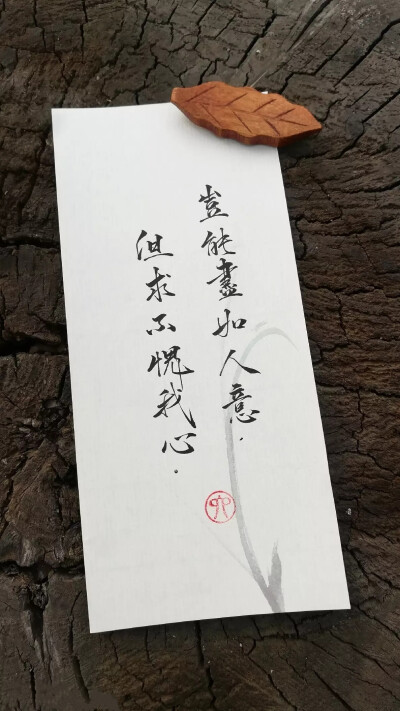 豈能盡如人意．
但求不愧我心．